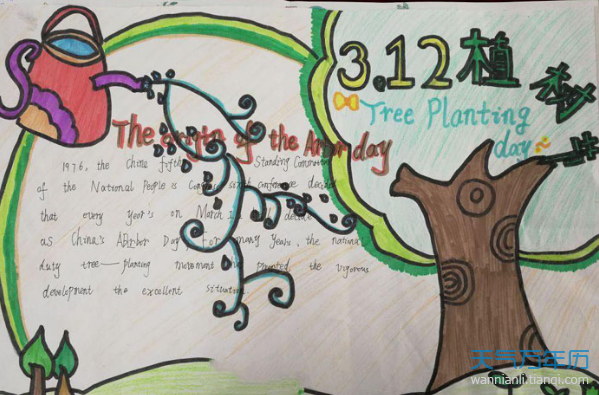 3.12植树
Tree Planting
day
The origin of the Arbor day
1976, the China fifth Standing
of the National People's conference
that every year's on March
as China's Arbor Day. For many years, the national
duty tree-planting movement the vigorous
development the excellent situation.
天气万年历
wannianli.tianqi.com